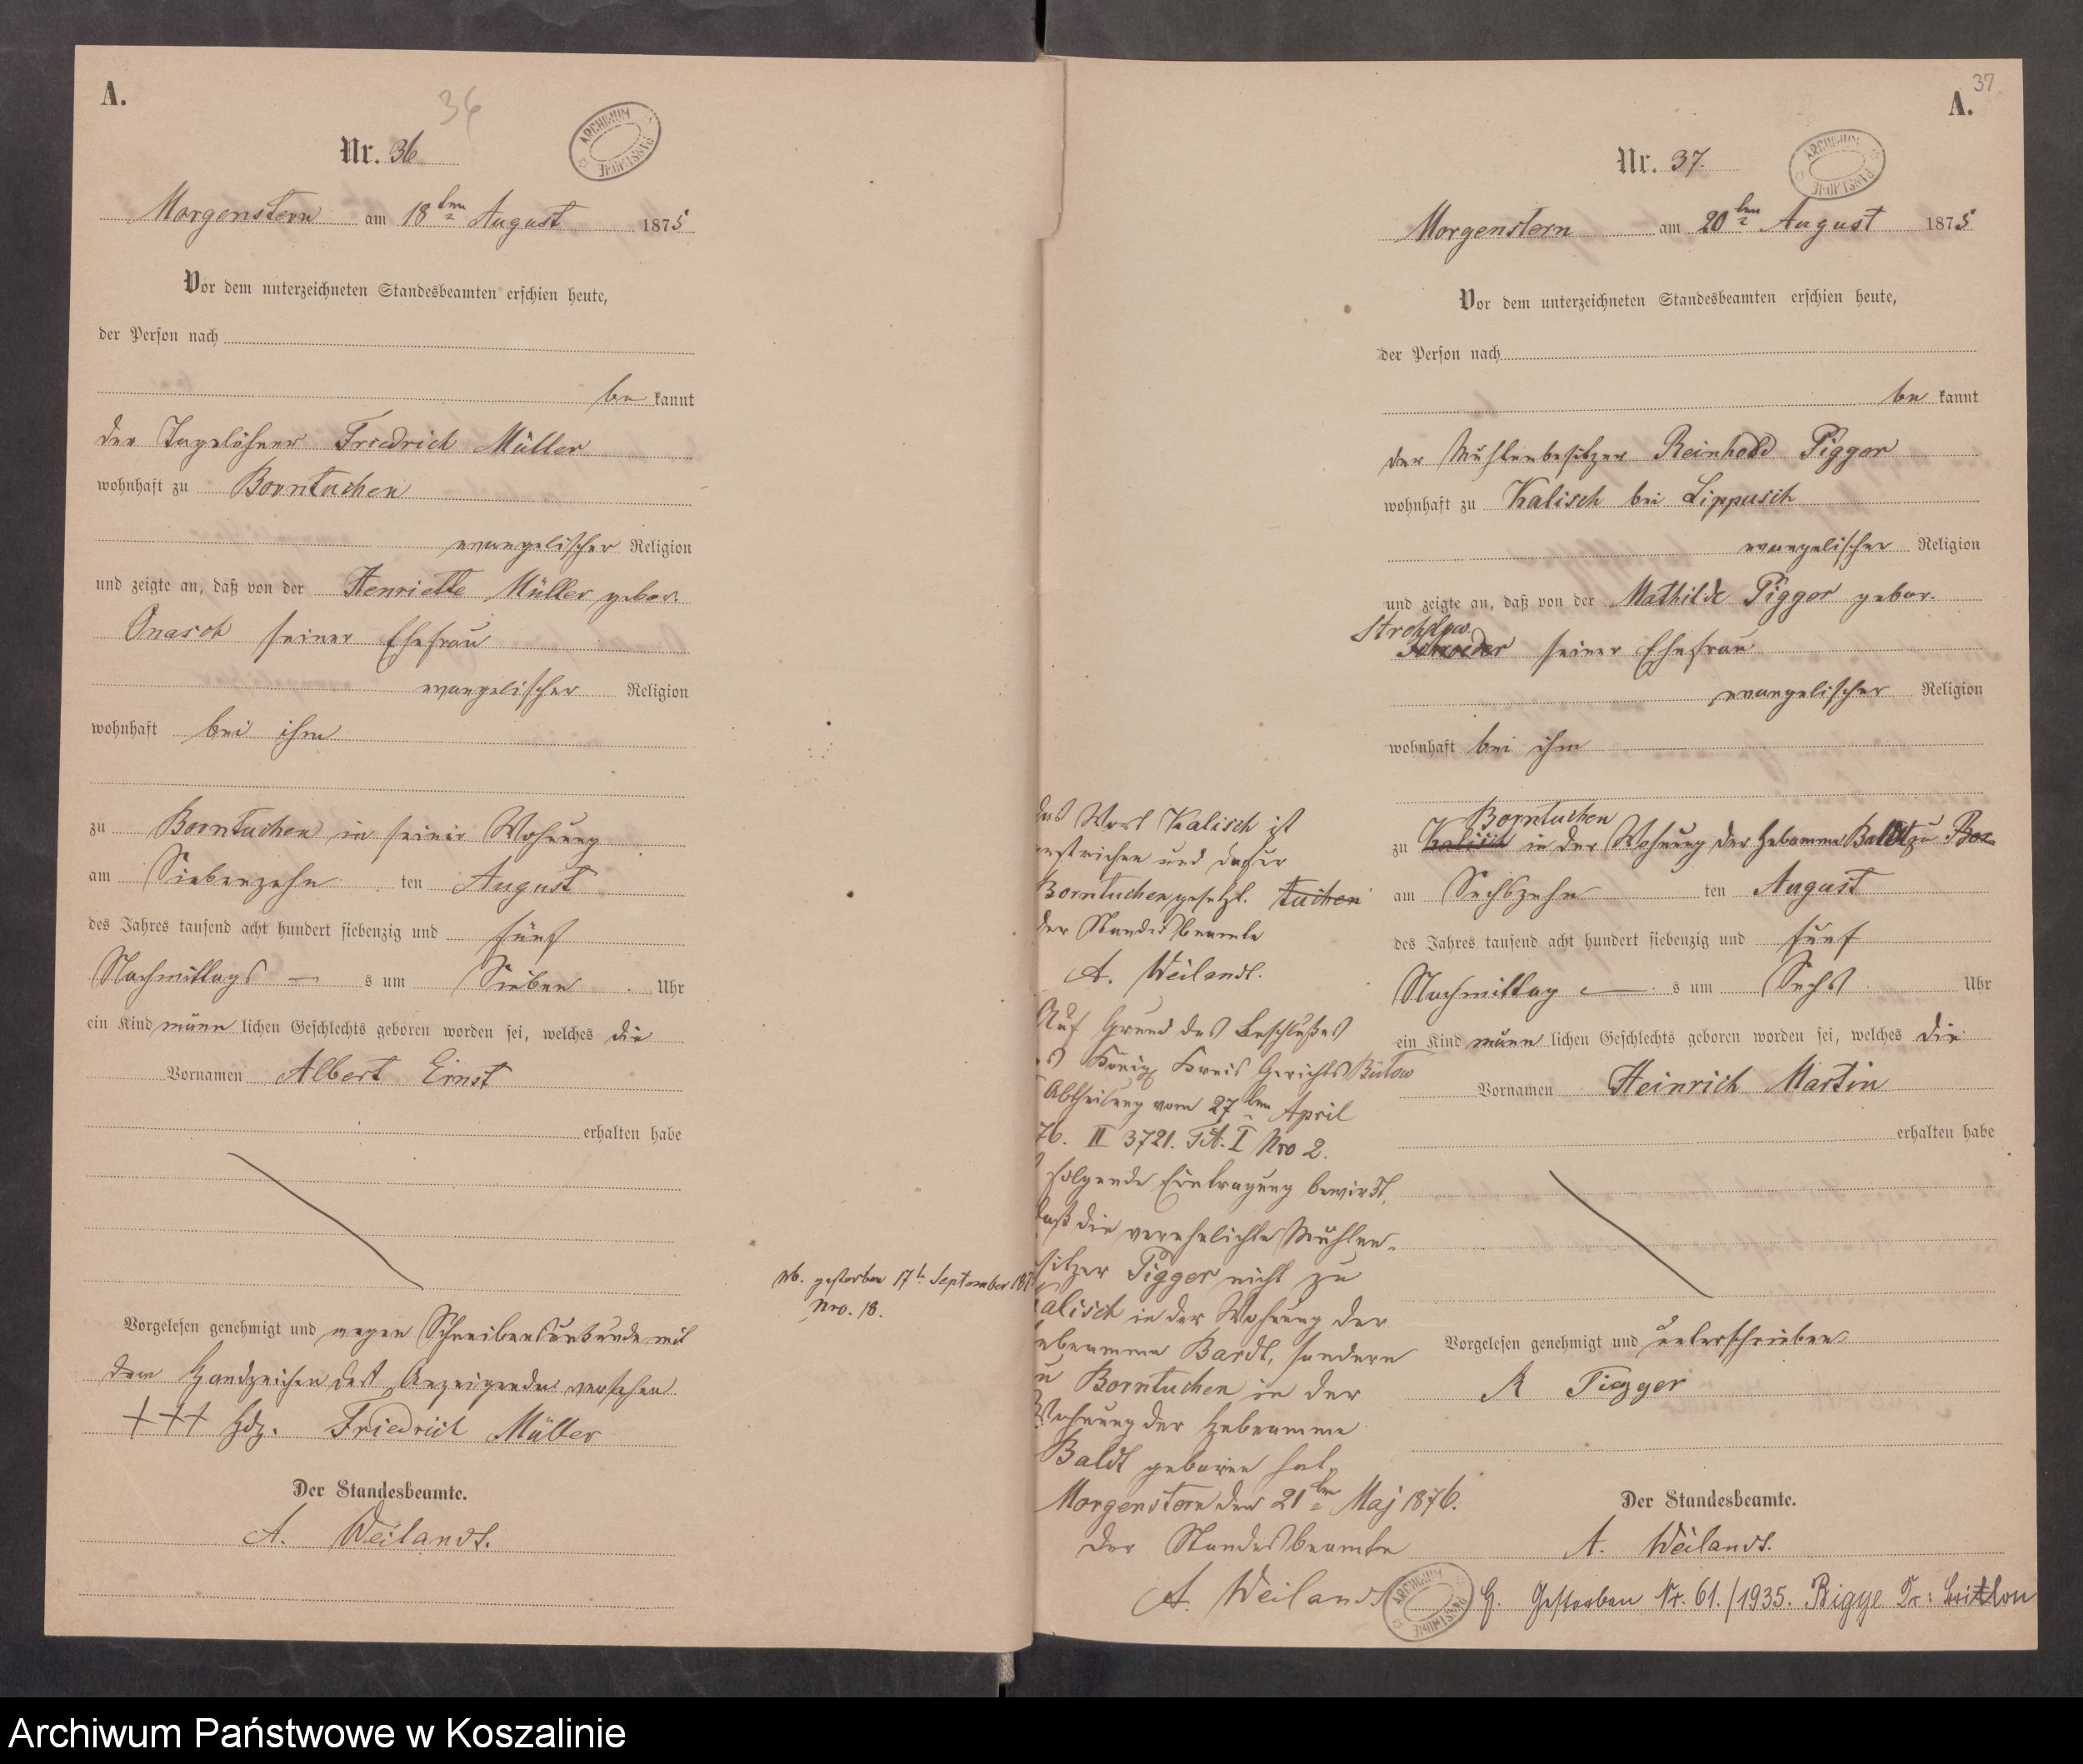 A.
36
ARCHIWUM PAŃSTWOWE
Nr. 36
Morgenstern am 18ten August 1875
Vor dem unterzeichneten Standesbeamten erschien heute,
der Person nach
be kannt
der Tagelöhner Friedrich Müller
wohnhaft zu Borntuchen
evangelischer Religion
und zeigte an, daß von der Henriette Müller gebor.
Onasch seiner Ehefrau
evangelischer Religion
wohnhaft bei ihm
zu Borntuchen in seiner Wohnung
am Siebenzehn ten August
des Jahres tausend acht hundert siebenzig und fünf
Nachmittags s um Sieben Uhr
ein Kind männ lichen Geschlechts geboren worden sei, welches die
Vornamen Albert Ernst
erhalten habe
Vorgelesen genehmigt und wegen Schreibensunkunde mit
dem Handzeichen des Anzeigenden versehen
+++ Hdz. Friedrich Müller
Der Standesbeamte.
A. Weilandt.
Nb. gestorben 17t September 187
Nro. 18.
37
A.
ARCHIWUM PAŃSTWOWE
Nr. 37.
Morgenstern am 20ten August 1875
Vor dem unterzeichneten Standesbeamten erschien heute,
der Person nach
be kannt
der Mühlenbesitzer Reinhold Pigger
wohnhaft zu Kalisch bei Lippusch
evangelischer Religion
und zeigte an, daß von der Mathilde Pigger gebor.
seiner Ehefrau
evangelischer Religion
wohnhaft bei ihm
Borntuchen
zu Kalisch in der Wohnung der Hebamme Baldt zu Bor
am Sechszehn ten August
des Jahres tausend acht hundert siebenzig und fünf
Nachmittag s um Sechs Uhr
ein Kind männ lichen Geschlechts geboren worden sei, welches die
Vornamen Heinrich Martin
erhalten habe
Vorgelesen genehmigt und unterschrieben
R Pigger
Der Standesbeamte.
A. Weilandt.
G. Gestorben Nr. 61./1935.
das Wort Kalisch ist
gestrichen und dafür
Borntuchen gesetzt. tuchen
der Standesbeamte
A. Weilandt.
Auf Grund des Beschlußes
es Königl Kreis Gerichts Bütow
Abtheilung vom 27ten April
76. II 3721. Tit. I Nro 2.
folgende Eintragung bewirkt,
daß die verehelichte Mühlen-
sitzer Pigger nicht zu
Kalisch in der Wohnung der
ebeamme Bardt, sondern
u Borntuchen in der
Wohnung der Hebeamme
Baldt geboren hat,
Morgenstern den 21ten Maj 1876.
Der Standesbeamte
A. Weilandt
ARCHIWUM PAŃSTWOWE
Archiwum Państwowe w Koszalinie